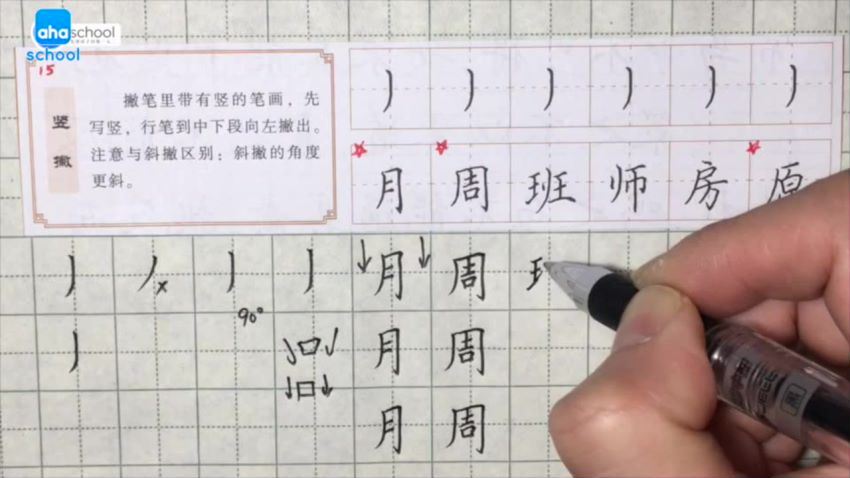 ahaschool
school
15
竖撇
撇笔里带有竖的笔画，先
写竖，行笔到中下段向左撇出。
注意与斜撇区别：斜撇的角度
更斜。
丿 丿 丿 丿 丿 丿
月 周 班 师 房 原
丿 丿 × 丿 丿 月 周
90°
丿 口 月 周
口 月 周